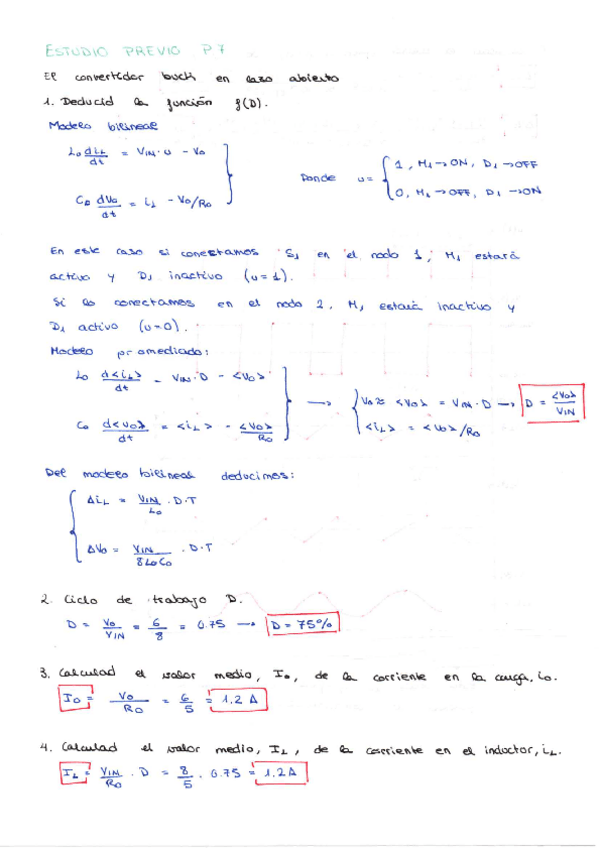 ESTUDIO PREVIO P7
El convertidor buck en lazo abierto
1. Deducid la función f(D).
Modelo bilineal
Lo diL/dt = VIN·u - Vo
Co dVo/dt = iL - Vo/Ro
Donde u = { 1, M1→ON, D1→OFF
0, M1→OFF, D1→ON
En este caso si conectamos S1 en el nodo 1, M1 estará
activo y D1 inactivo (u=1).
Si lo conectamos en el nodo 2, M1 estará inactivo y
D1 activo (u=0).
Modelo promediado:
Lo d<iL>/dt = VIN·D - <Vo>
Co d<vo>/dt = <iL> - <Vo>/Ro
→ { Vo ≈ <Vo> = VIN·D → D = <Vo>/VIN
<iL> = <Vo>/Ro
Del modelo bilineal deducimos:
ΔiL = VIN/Lo · D·T
ΔVo = VIN/8LoCo · D·T
2. Ciclo de trabajo D.
D = Vo/VIN = 6/8 = 0.75 → D = 75%
3. Calculad el valor medio, Io, de la corriente en la carga, io.
Io = Vo/Ro = 6/5 = 1.2 A
4. Calculad el valor medio, IL, de la corriente en el inductor, iL.
IL = VIN/Ro · D = 8/5 · 0.75 = 1.2 A